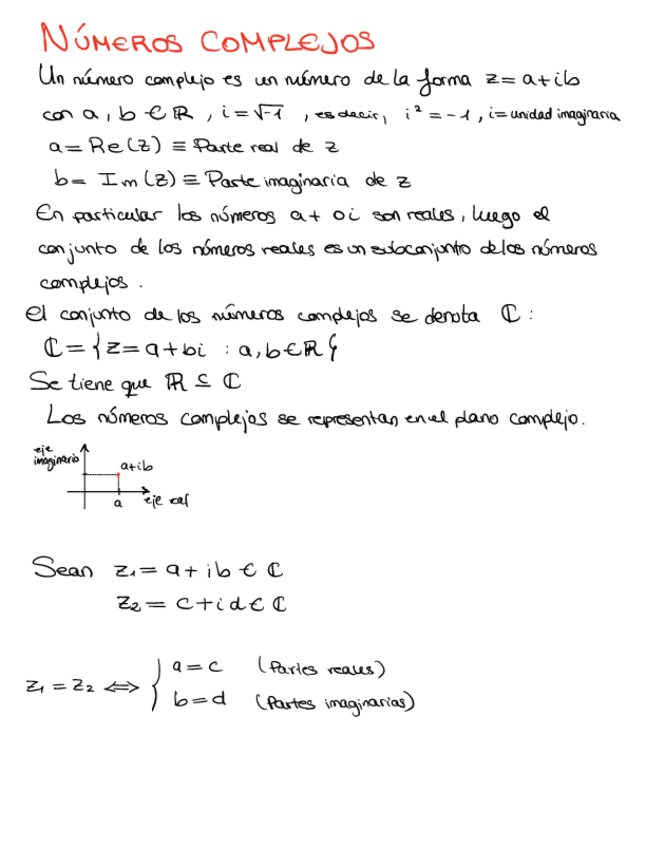 NÚMEROS COMPLEJOS
Un número complejo es un número de la forma z = a + ib
con a, b ∈ ℝ, i = √-1, es decir, i² = -1, i = unidad imaginaria
a = Re(z) ≡ Parte real de z
b = Im(z) ≡ Parte imaginaria de z
En particular los números a + 0i son reales, luego el
conjunto de los números reales es un subconjunto de los números
complejos.
El conjunto de los números complejos se denota ℂ:
ℂ = {z = a + bi : a, b ∈ ℝ}
Se tiene que ℝ ⊆ ℂ
Los números complejos se representan en el plano complejo.
eje
imaginario
a + ib
a
eje real
Sean z₁ = a + ib ∈ ℂ
z₂ = c + id ∈ ℂ
z₁ = z₂ ⇔ { a = c (Partes reales)
b = d (Partes imaginarias)